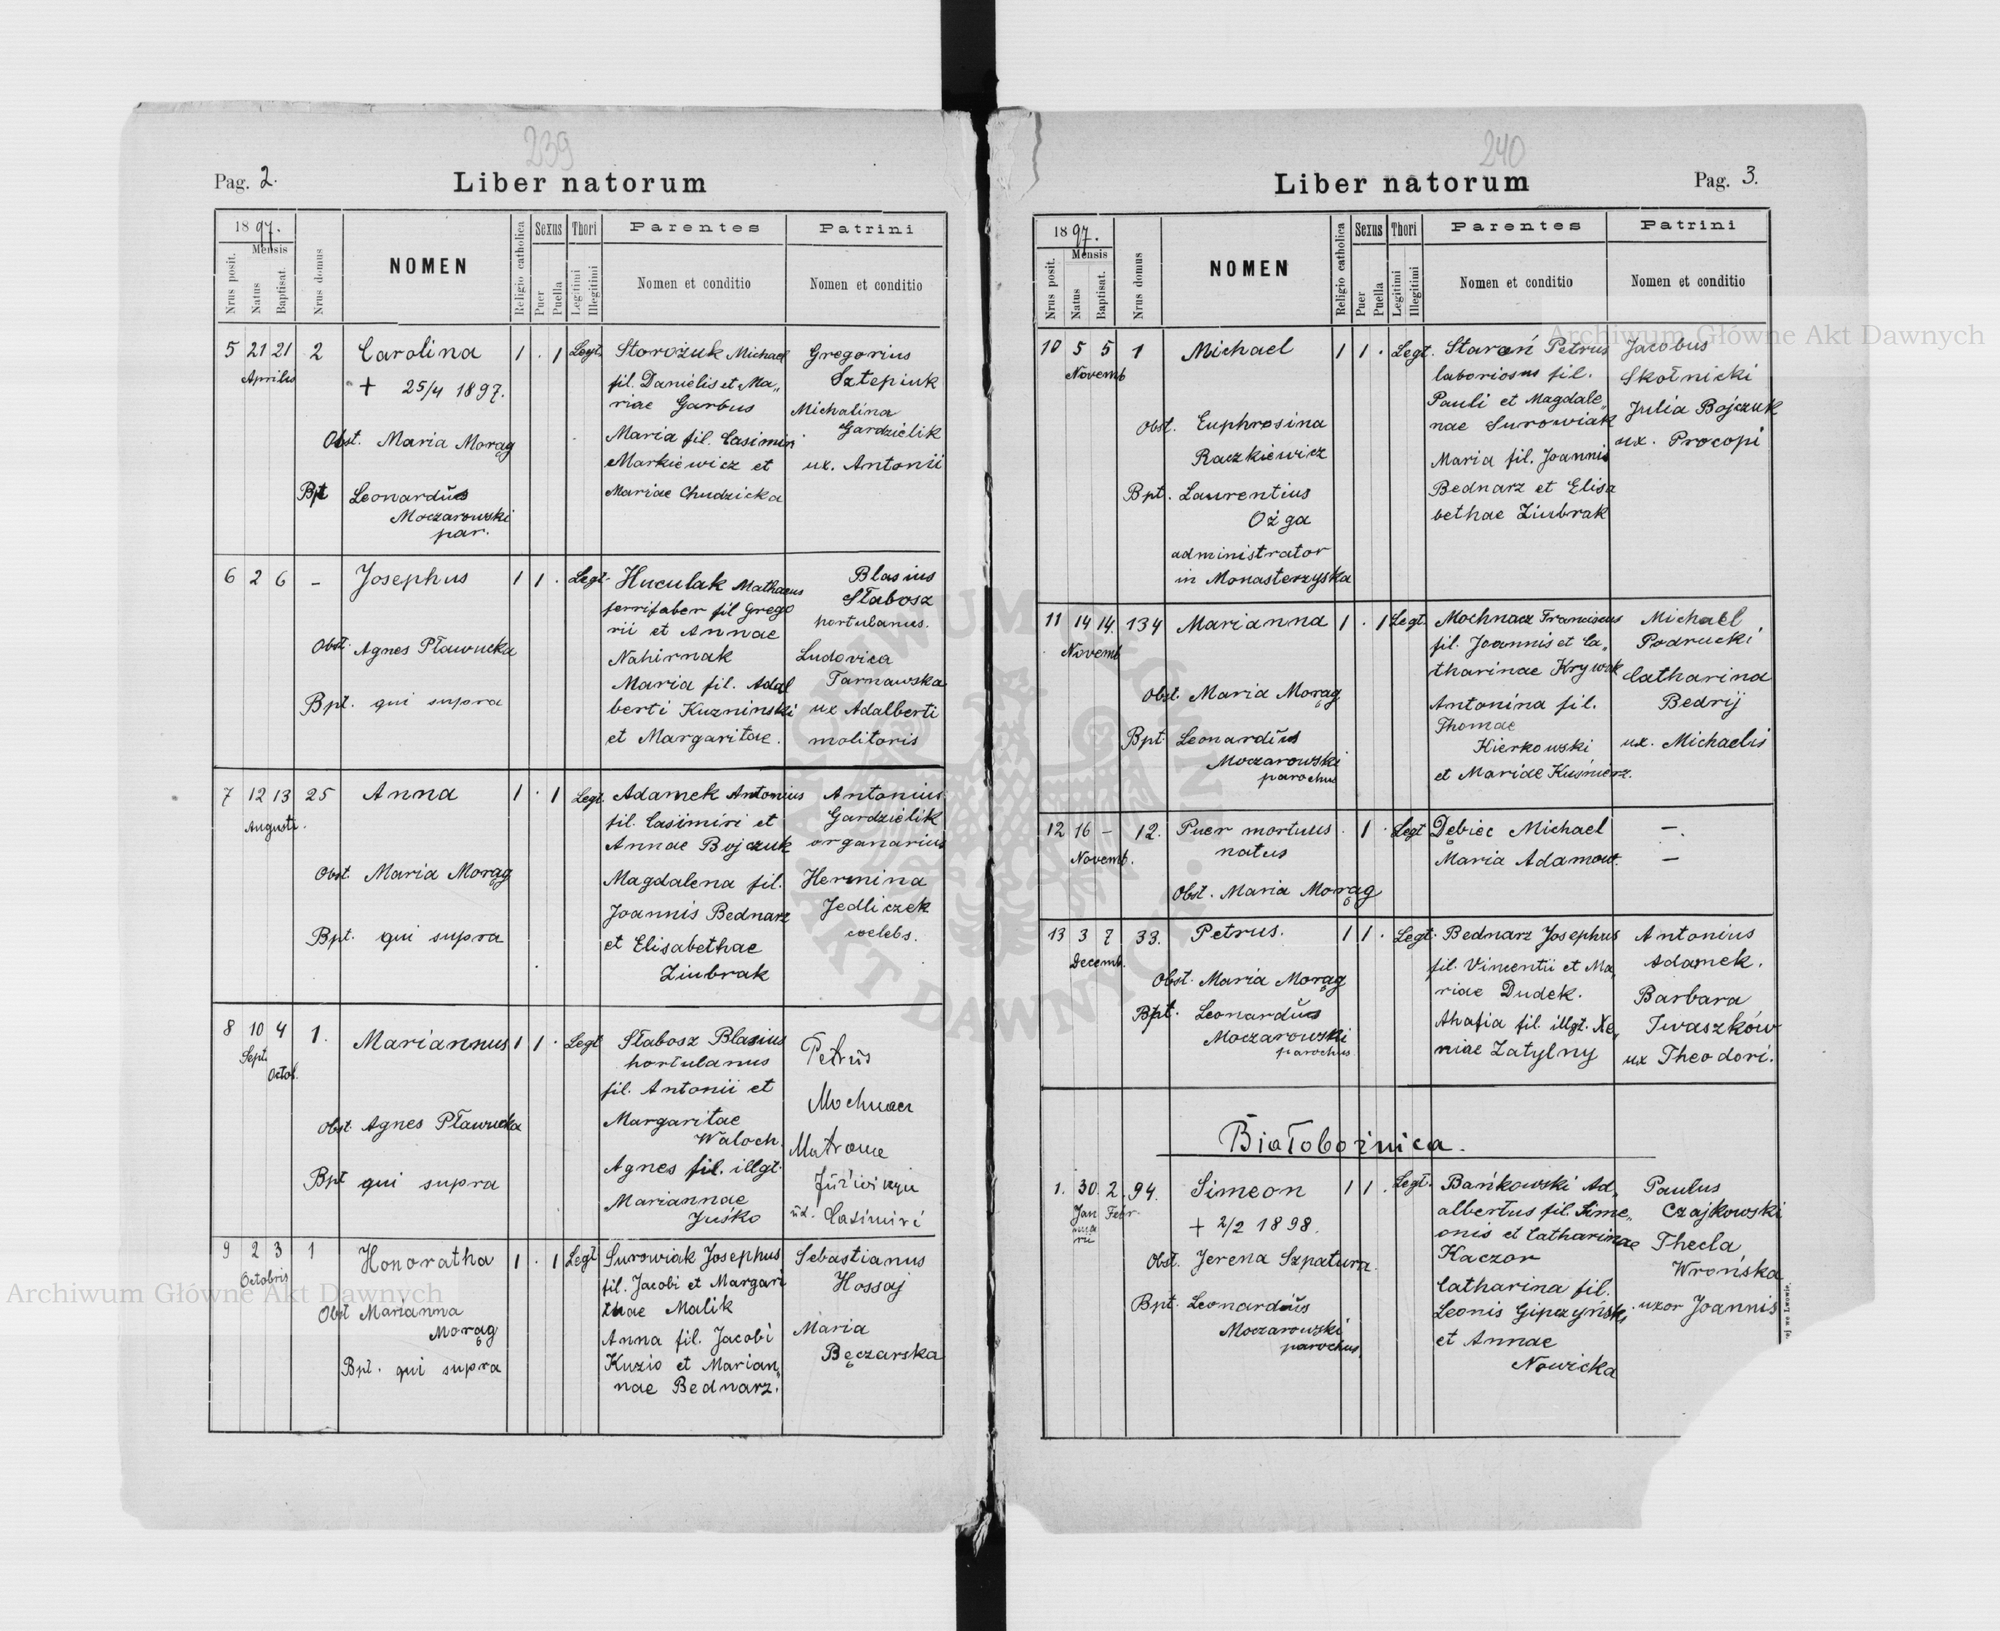 239
Pag. 2.
Liber natorum
1897.
Mensis
Nrus posit.
Natus
Baptisat.
Nrus domus
NOMEN
Religio catholica
Sexus
Puer
Puella
Thori
Legitimi
Illegitimi
Parentes
Nomen et conditio
Patrini
Nomen et conditio
5 21 21 2 Carolina 1 . 1 Legt. Storożuk Michael Gregorius
Aprilis + 25/4 1897. fil. Danielis et Ma„ Sztepiuk
riae Garbus Michalina
Obst. Maria Morąg Maria fil. Casimiri Gardzielik
Markiewicz et ux. Antonii
Bpt Leonardŭs Mariae Chudzicka
Moczarowski
par.
6 2 6 - Josephus 1 1 . Legt. Huculak Mathaeus Blasius
ferrifaber fil Grego Słabosz
rii et Annae hortulanus.
Obst. Agnes Pławucka Nahirnak Ludovica
Maria fil. Adal Tarnawska
Bpt. qui supra berti Kuzninski ux Adalberti
et Margaritae. molitoris
7 12 13 25 Anna 1 . 1 Legt. Adamek Antonius Antonius
Augusti. fil. Casimiri et Gardzielik
Annae Bojczuk organarius
Obst. Maria Morąg Magdalena fil. Hermina
Joannis Bednarz Jedliczek
Bpt. qui supra et Elisabethae coelebs.
Ziubrak
8 10 4 1. Mariannus 1 1 . Legt Słabosz Blasius Petrŭs
Sept. Octob. hortulanus
fil. Antonii et Mochnacz
Obst. Agnes Pławucka Margaritae
Waloch.
Bpt qui supra Agnes fil. illgt.
Mariannae
Juśko Casimiri
9 2 3 1 Honoratha 1 . 1 Legt Surowiak Josephus Sebastianus
Octobris fil. Jacobi et Margari Hossaj
Obst Marianna thae Malik
Morąg Anna fil. Jacobi Maria
Bpt. qui supra Kuzio et Marian„ Bęczarska
nae Bednarz.
240
Liber natorum
Pag. 3.
1897.
Mensis
Nrus posit.
Natus
Baptisat.
Nrus domus
NOMEN
Religio catholica
Sexus
Puer
Puella
Thori
Legitimi
Illegitimi
Parentes
Nomen et conditio
Patrini
Nomen et conditio
10 5 5 1 Michael 1 1 . Legt. Staroń Petrus Jacobus
Novemb laboriosus fil. Skołnicki
Pauli et Magdale„ Julia Bojczuk
Obst. Euphrosina nae Surowiak ux. Procopi
Raczkiewicz Maria fil. Joannis
Bpt. Laurentius Bednarz et Elisa
Ożga bethae Ziubrak
administrator
in Monasterzyska
11 14 14. 134 Marianna 1 . 1 Legt. Mochnacz Franciscus Michael
Novemb fil. Joannis et Ca„ Podrucki
tharinae Krywak Catharina
Obst. Maria Morąg Antonina fil. Bedrij
Thomae
Bpt. Leonardŭs Kierkowski ux. Michaelis
Moczarowski et Mariae Kuśnierz.
parochus
12 16 - 12. Puer mortuus . 1 . Legt Dębiec Michael -.
Novemb. natus Maria Adamow. -
Obst. Maria Morąg
13 3 7 33. Petrus. 1 1 . Legt. Bednarz Josephus Antonius
Decemb. fil. Vincentii et Ma„ Adamek.
Obst. Maria Morąg riae Dudek. Barbara
Bpt. Leonardŭs Ahafia fil. illgt. Xe„ Iwaszków
Moczarowski niae Zatylny ux Theodori.
parochus
Białobożnica.
1. 30. 2. 94. Simeon 1 1 . Legt. Bańkowski Ad„ Paulus
Jan Febr. + 2/2 1898. albertus fil. Sime„ Czajkowski
nua
rii onis et Catharinae Thecla
Obst. Jerena Szpatura. Kaczor Wrońska
Catharina fil.
Bpt. Leonardŭs Leonis Gipczyński uxor Joannis
Moczarowski et Annae
parochus. Nowicka
we Lwowie.
Archiwum Główne Akt Dawnych
Archiwum Główne Akt Dawnych
ARCHIWUM GŁÓWNE
AKT DAWNYCH